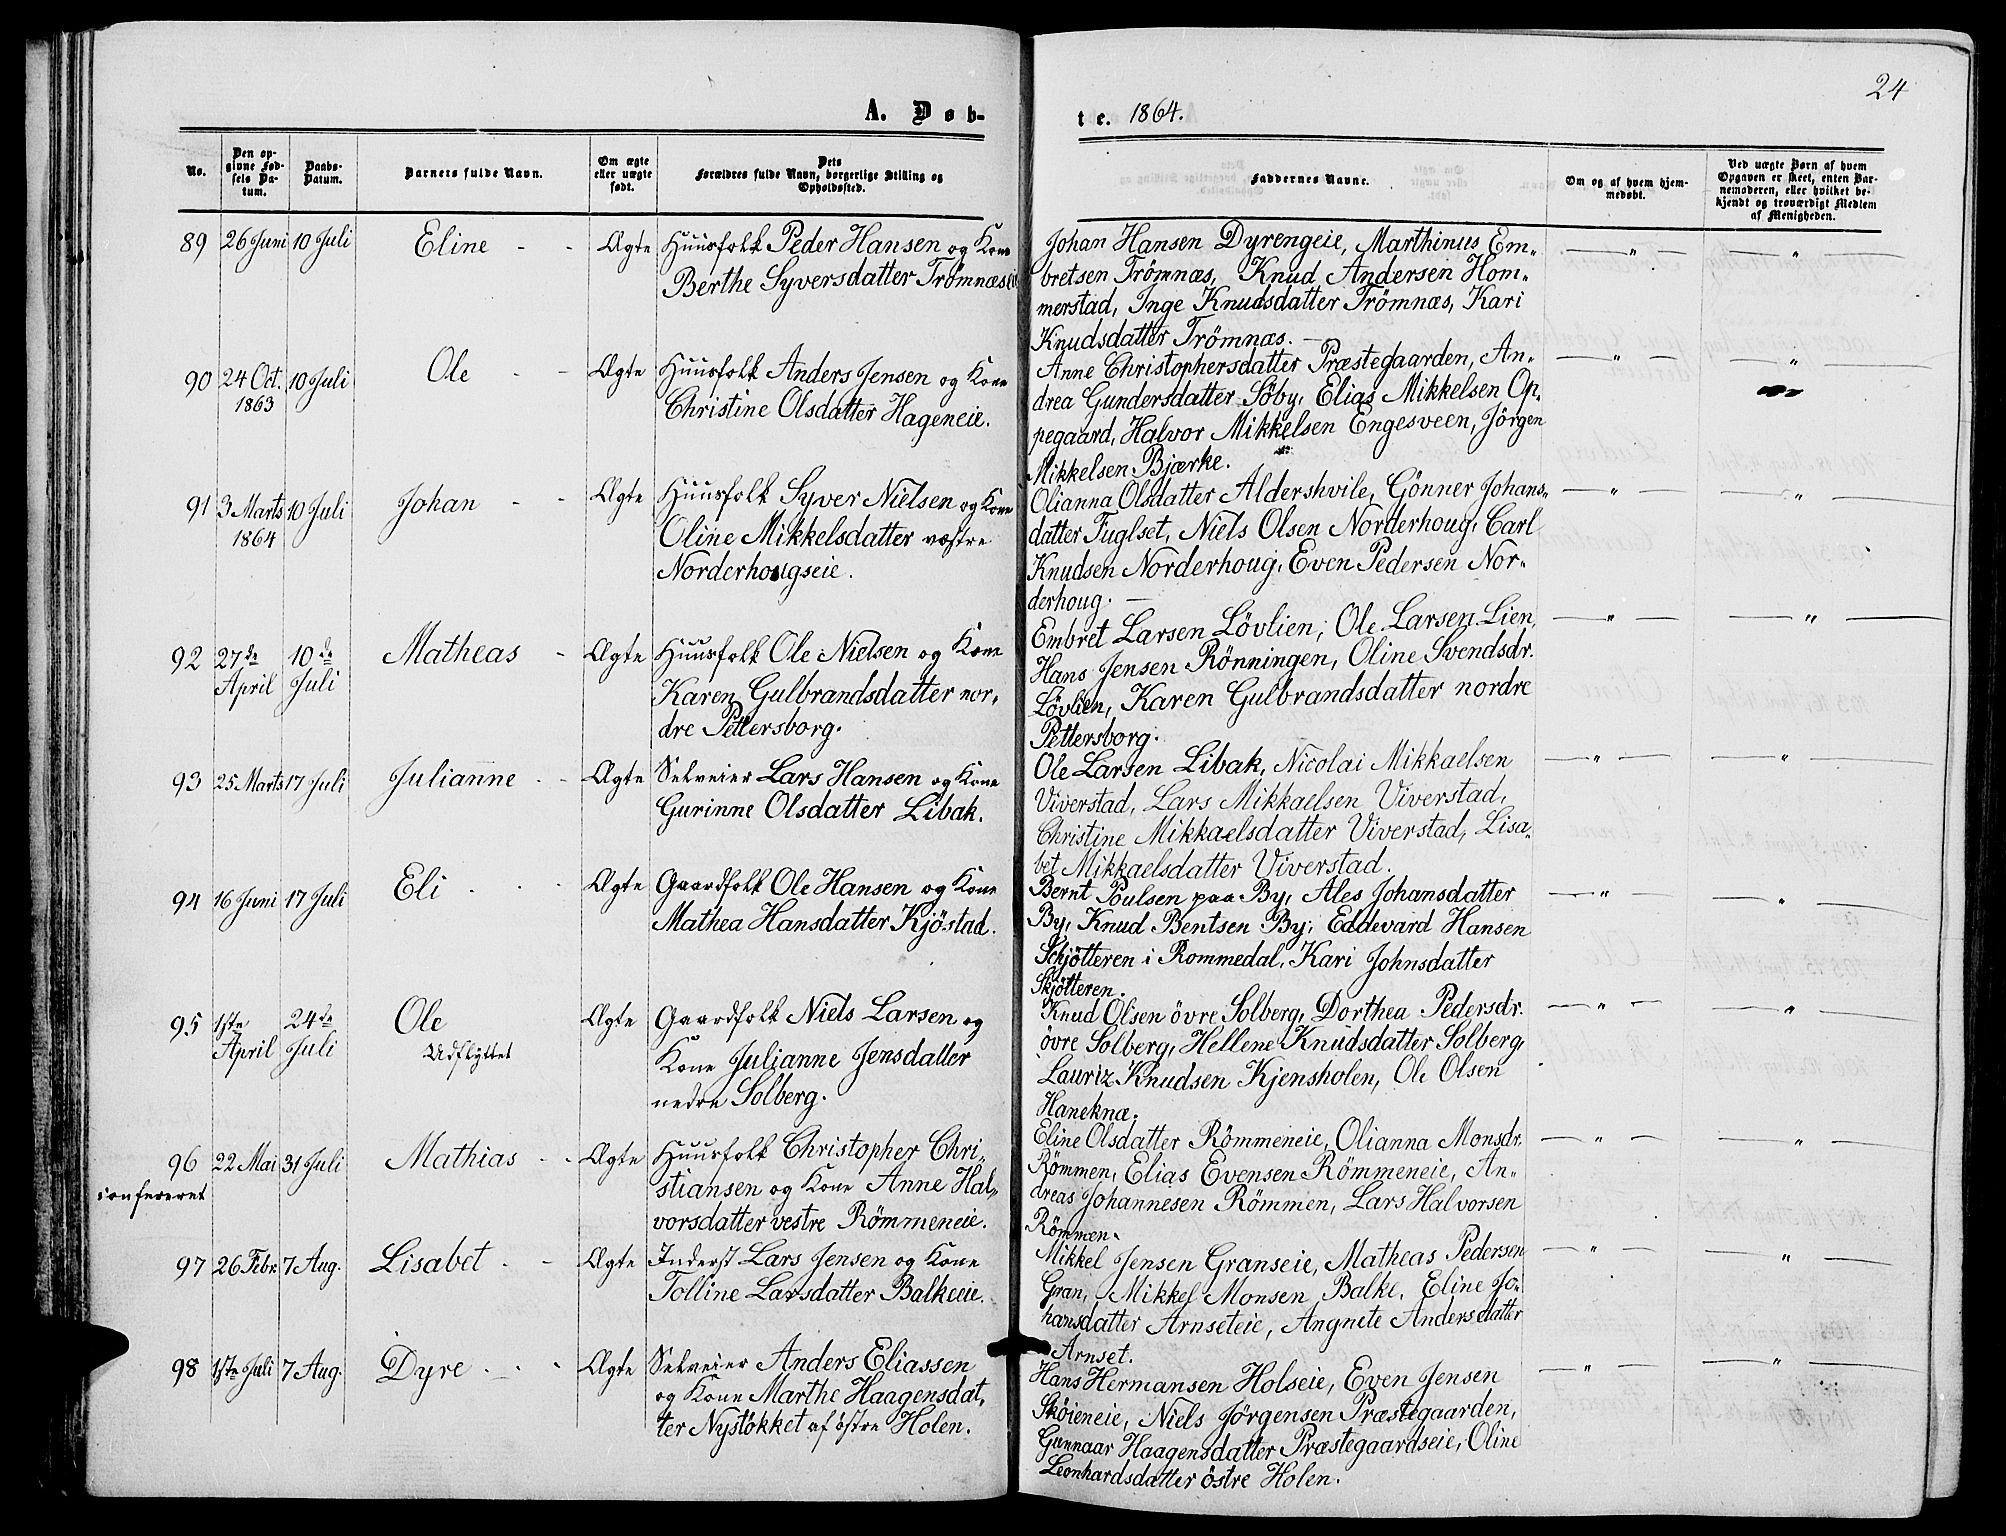 24
A. Døb-
te. 1864.
No.
Den op-
givne Fød-
sels Da-
tum.
Daabs-
Datum.
Barnets fulde Navn.
Om ægte
eller uægte
født.
Dets
Forældres fulde Navn, borgerlige Stilling og
Opholdssted.
Faddernes Navne.
Om og af hvem hjem-
medøbt.
Ved uægte Børn af hvem
Opgaven er skeet, enten Bar-
nemoderen, eller hvilket be-
kjendt og troværdigt Medlem
af Menigheden.
89 26 Juni 10 Juli Eline - - Ægte Huusfolk Peder Hansen og Kone
Berthe Syversdatter Trömnæs
Johan Hansen Dyrengeie, Marthinus Em-
bretsen Trömnæs, Knud Andersen Hom-
merstad, Inge Knudsdatter Trömnæs, Kari
Knudsdatter Trömnæs. —
90 24 Oct. 10 Juli Ole - - Ægte Huusfolk Anders Jensen og Kone
1863 Christine Olsdatter Hageneie.
Anne Christophersdatter Præstegaarden, An-
drea Gundersdatter Söby, Elias Mikkelsen Op-
pegaard, Halvor Mikkelsen Engesveen, Jörgen
Mikkelsen Bjærke.
91 3 Marts 10 Juli Johan - - Ægte Huusfolk Syver Nielsen og Kone
1864 Oline Mikkelsdatter vestre
Norderhougseie.
Olianna Olsdatter Aldershvile, Gönner Johans-
datter Fuglset, Niels Olsen Norderhoug, Carl
Knudsen Norderhoug, Even Pedersen Nor-
derhoug. —
92 27de 10de Matheas - Ægte Huusfolk Ole Nielsen og Kone
April Juli Karen Gulbrandsdatter nor-
dre Pettersborg.
Embret Larsen Lövlien, Ole Larsen Lien,
Hans Jensen Rönningen, Oline Svendsdr.
Lövlien, Karen Gulbrandsdatter nordre
Pettersborg.
93 25 Marts 17 Juli Julianne - - Ægte Selveier Lars Hansen og Kone
Gurinne Olsdatter Libak.
Ole Larsen Libak, Nicolai Mikkaelsen
Viverstad, Lars Mikkaelsen Viverstad,
Christine Mikkaelsdatter Viverstad, Lisa-
bet Mikkaelsdatter Viverstad.
94 16 Juni 17 Juli Eli - - - Ægte Gaardfolk Ole Hansen og Kone
Mathea Hansdatter Kjöstad.
Bernt Poulsen paa By, Ales Johansdatter
By, Knud Bentsen By, Eddevard Hansen
Skjötteren i Rommedal, Kari Johnsdatter
Skjötteren.
95 1ste 24de Ole Ægte Gaardfolk Niels Larsen og
April Juli Udflyttet Kone Julianne Jensdatter
nedre Solberg.
Knud Olsen övre Solberg, Dorthea Pedersdr.
övre Solberg, Hellene Knudsdatter Solberg,
Lauriz Knudsen Kjensholen, Ole Olsen
Haneknæ.
96 22 Mai 31 Juli Mathias - - Ægte Huusfolk Christopher Chri-
confereret stiansen og Kone Anne Hal-
vorsdatter vestre Römmeneie.
Eline Olsdatter Römmeneie, Olianna Monsdr.
Römmen, Elias Evensen Römmeneie, An-
dreas Johannesen Römmen, Lars Halvorsen
Römmen.
97 26 Febr. 7 Aug. Lisabet - - Ægte Inderst Lars Jensen og Kone
Tolline Larsdatter Balkeeie.
Mikkel Jensen Granseie, Matheas Pedersen
Gran, Mikkel Monsen Balke, Eline Jo-
hansdatter Arnseteie, Angnete Andersdatter
Arnset.
98 1ste Juli 7 Aug. Dyre - - - Ægte Selveier Anders Eliassen
og Kone Marthe Haagensdat-
ter Nystökket af östre Holen.
Hans Hermansen Holseie, Even Jensen
Sköieneie, Niels Jörgensen Præstegaarden,
Gunnaar Haagensdatter Præstegaardseie, Oline
Leonhardsdatter östre Holen.